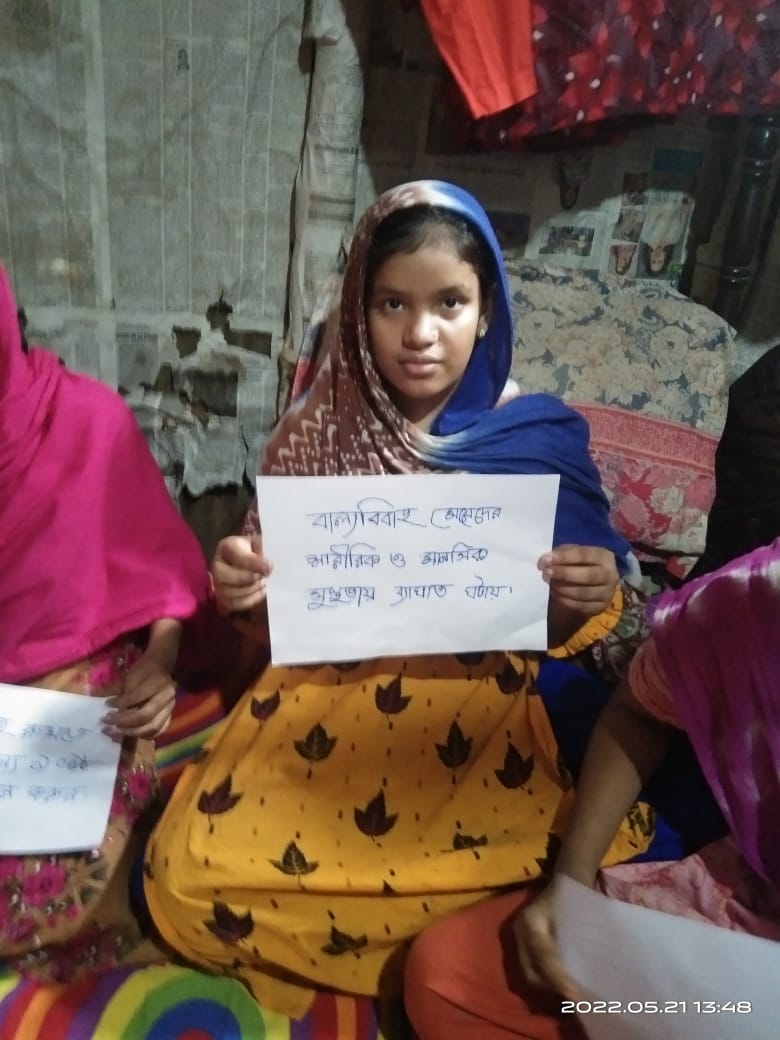 বাল্যবিবাহ মেয়েদের
শারীরিক ও মানসিক
সুস্থতায় ব্যাঘাত ঘটায়।
১০৯৮
করুন
2022.05.21 13:48